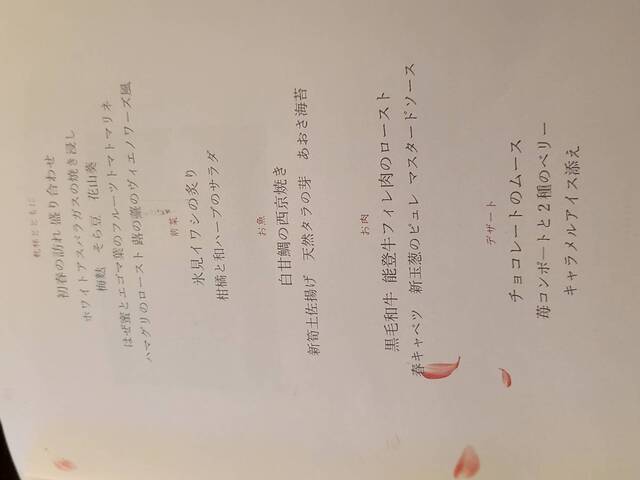 乾杯とともに
初春の訪れ 盛り合わせ
ホワイトアスパラガスの焼き浸し
梅麩 そら豆 花山葵
はぜ蜜とエゴマ葉のフルーツトマトマリネ
ハマグリのロースト 蕗の薹のヴィエノワーズ風
前菜
氷見イワシの炙り
柑橘と和ハーブのサラダ
お魚
白甘鯛の西京焼き
新筍土佐揚げ 天然タラの芽 あおさ海苔
お肉
黒毛和牛 能登牛フィレ肉のロースト
春キャベツ 新玉葱のピュレ マスタードソース
デザート
チョコレートのムース
苺コンポートと2種のベリー
キャラメルアイス添え